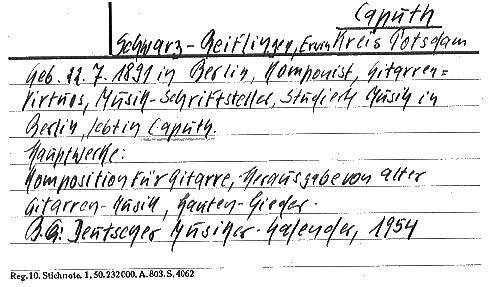 Caputh
Schwarz-Reiflingen, Erwin Kreis Potsdam
Geb. 22.7.1891 in Berlin, Komponist, Gitarren=
virtuos, Musik-Schriftsteller, Studierte Musik in
Berlin, lebt in Caputh.
Hauptwerke:
Komposition für Gitarre, Herausgabe von alter
Gitarren-Musik, Lauten-Lieder.
B.G: Deutscher Musiker-Kalender, 1954
Reg.10. Stichnote. 1, 50. 232000. A. 803. S. 4062